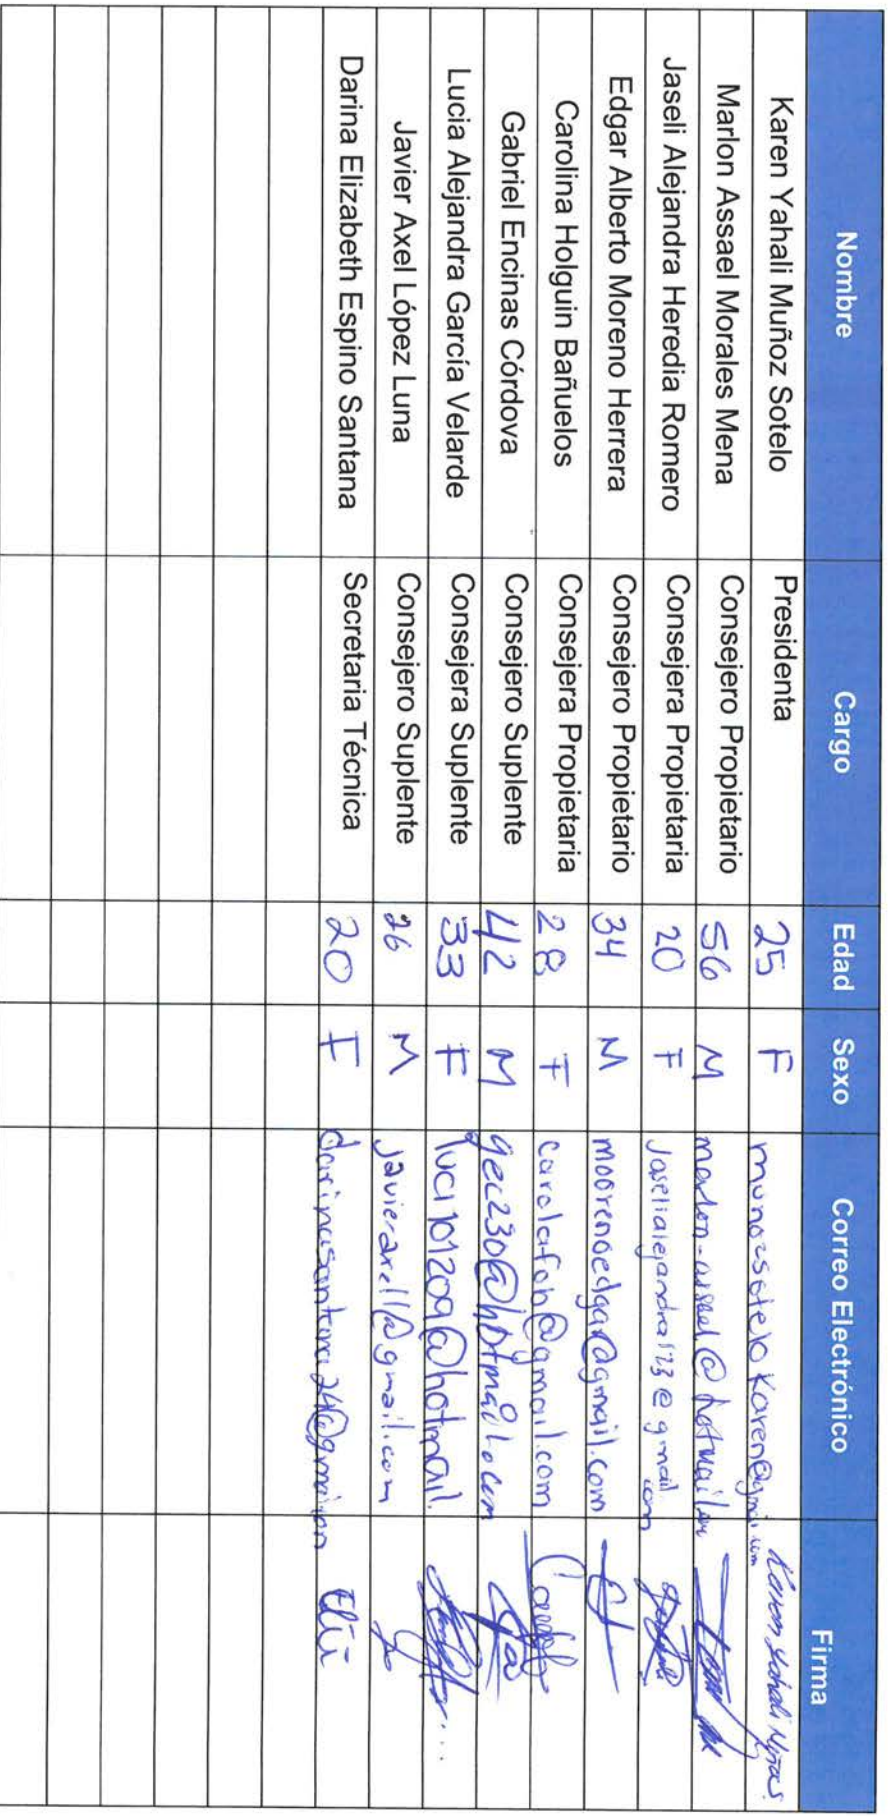 Nombre Cargo Edad Sexo Correo Electrónico Firma
Karen Yahali Muñoz Sotelo Presidenta 25 F munozsotelokaren@gmail.com
Marlon Assael Morales Mena Consejero Propietario 56 M
Jaseli Alejandra Heredia Romero Consejera Propietaria 20 F Jaselialejandra123@gmail.com
Edgar Alberto Moreno Herrera Consejero Propietario 34 M moorenoedgar@gmail.com
Carolina Holguin Bañuelos Consejera Propietaria 28 F carolafoh@gmail.com
Gabriel Encinas Córdova Consejero Suplente 42 M gec230@hotmail.com
Lucia Alejandra García Velarde Consejera Suplente 33 F luci101209@hotmail.
Javier Axel López Luna Consejero Suplente 26 M javieraxell@gmail.com
Darina Elizabeth Espino Santana Secretaria Técnica 20 F